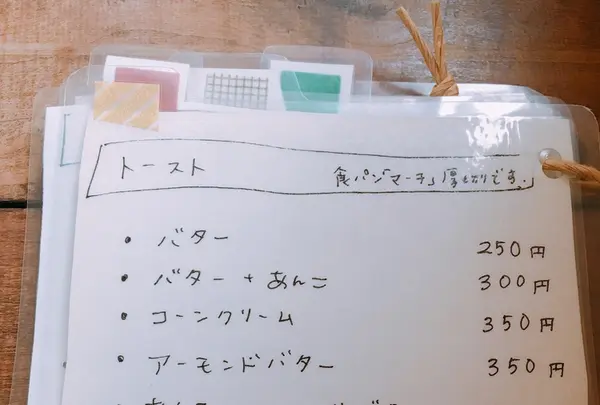 トースト 食パン「マーチ」厚切りです。
・バター 250円
・バター+あんこ 300円
・コーンクリーム 350円
・アーモンドバター 350円